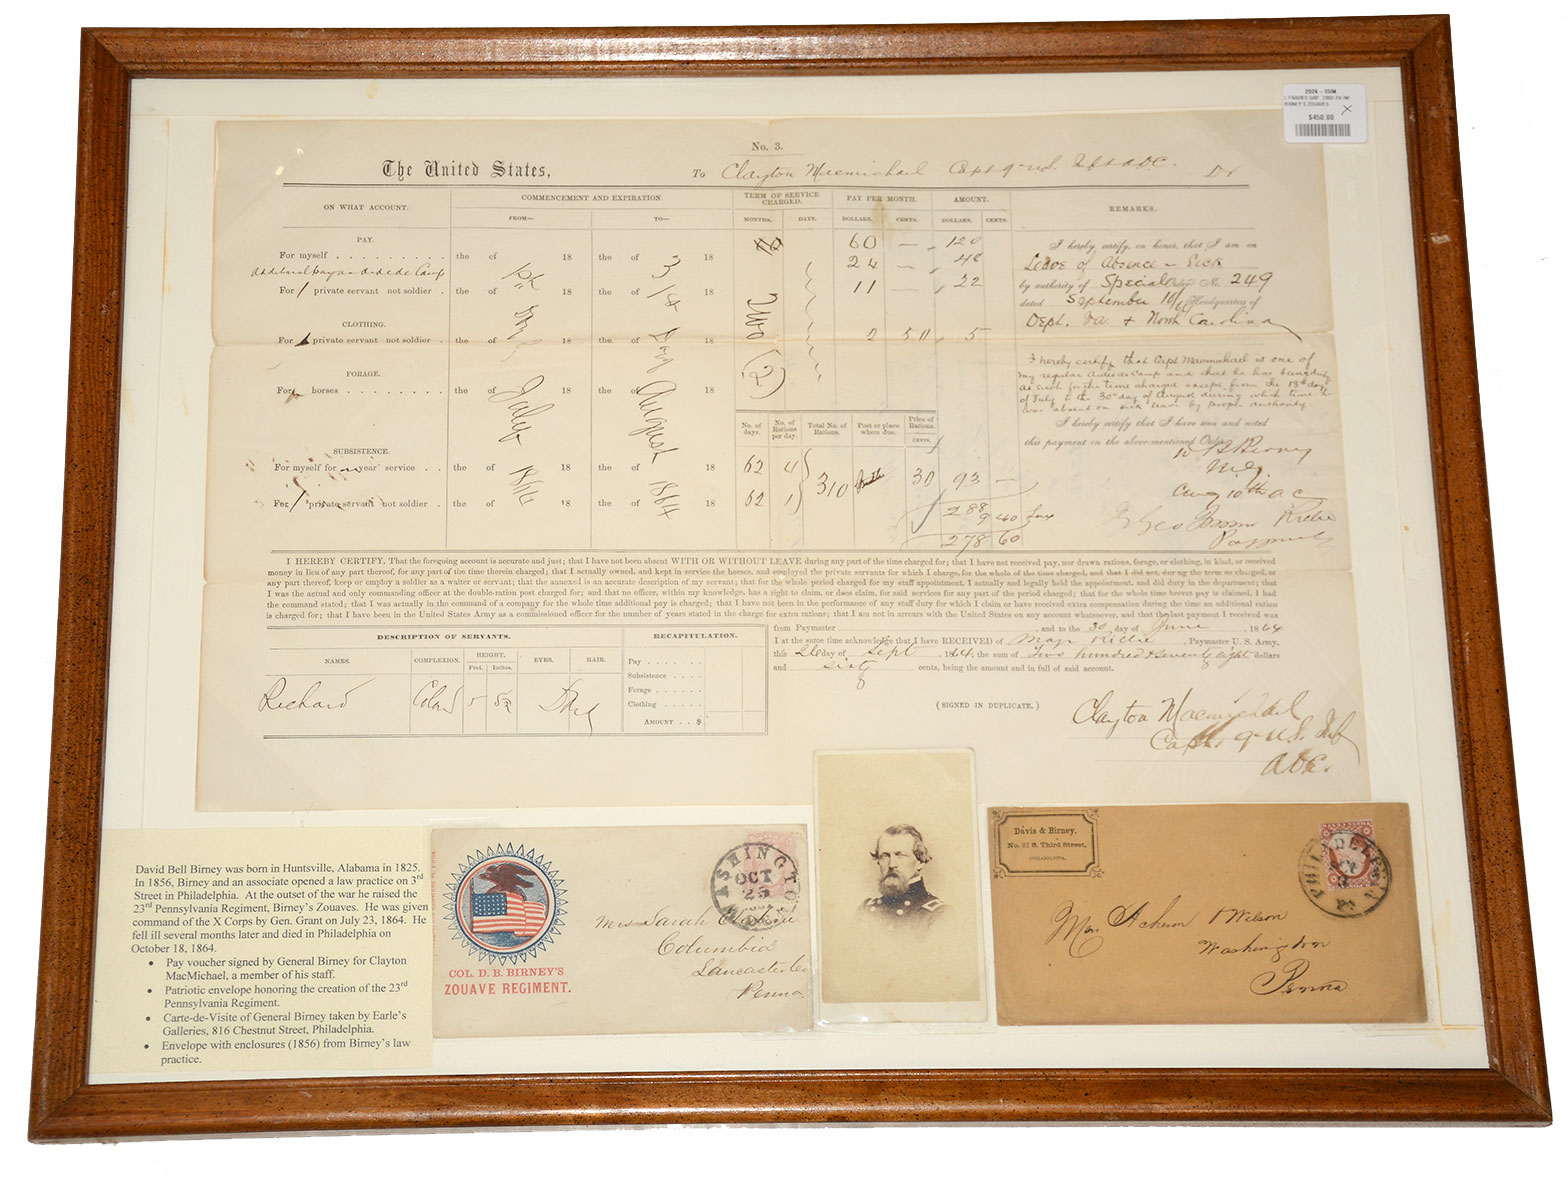 2024 - 1594
$450.00
X
No. 3.
The United States, To Clayton Macmichael Capt 9th U.S. Inf & ADC. Dr
ON WHAT ACCOUNT.
COMMENCEMENT AND EXPIRATION.
TERM OF SERVICE CHARGED.
PAY PER MONTH.
AMOUNT.
REMARKS.
FROM— TO— MONTHS. DAYS. DOLLARS. CENTS. DOLLARS. CENTS.
PAY.
For myself . . . . . . . . . the of 18 the of 18 60 — 120
additional pay as aid de Camp 24 — 48
For 1 private servant not soldier . the of 18 the of 18 11 — 22
CLOTHING.
For 1 private servant not soldier . the of 18 the of 18 2 50 5
FORAGE.
For horses . . . . . . . . the of 18 the of 18
1st Day July 1864
31st Day August 1864
Two (2)
No. of days. No. of Rations per day. Total No. of Rations. Post or place where due. Price of Rations. CENTS.
SUBSISTENCE.
For myself for year' service . . the of 18 the of 18 62 4 310 30 93 —
For 1 private servant not soldier . the of 18 the of 18 62 1
288
9 40 tax
278 60
I hereby certify, on honor, that I am on
Leave of Absence — Sick
by authority of Special Order No. 249
dated September 10/64 Headquarters of
Dept. Va + North Carolina
I hereby certify that Capt Macmichael is one of
my regular Aides de Camp and that he has been on duty
as such for the time charged except from the 18th day
of July to the 30th day of August during which time he
was absent on sick leave by proper authority.
I hereby certify that I have seen and noted
this payment on the above-mentioned Order.
D B Birney
M. G.
Comg 10th A C
I HEREBY CERTIFY, That the foregoing account is accurate and just; that I have not been absent WITH OR WITHOUT LEAVE during any part of the time charged for; that I have not received pay, nor drawn rations, forage, or clothing, in kind, or received
money in lieu of any part thereof, for any part of the time therein charged; that I actually owned, and kept in service the horses, and employed the private servants for which I charge, for the whole of the time charged, and that I did not, during the term so charged, or
any part thereof, keep or employ a soldier as a waiter or servant; that the annexed is an accurate description of my servant; that for the whole period charged for my staff appointment, I actually and legally held the appointment, and did duty in the department; that
I was the actual and only commanding officer at the double-ration post charged for; and that no officer, within my knowledge, has a right to claim, or does claim, for said services for any part of the period charged; that for the whole time brevet pay is claimed, I had
the command stated; that I was actually in the command of a company for the whole time additional pay is charged; that I have not been in the performance of any staff duty for which I claim or have received extra compensation during the time an additional ration
is charged for; that I have been in the United States Army as a commissioned officer for the number of years stated in the charge for extra rations; that I am not in arrears with the United States on any account whatsoever, and that the last payment I received was
from Paymaster , and to the 30 day of June , 1864
I at the same time acknowledge that I have RECEIVED of Major Richie , Paymaster U. S. Army,
this 26 day of Sept , 1864, the sum of Two hundred & seventy eight dollars
and sixty cents, being the amount and in full of said account.
DESCRIPTION OF SERVANTS.
NAMES. COMPLEXION. HEIGHT. Feet. Inches. EYES. HAIR.
Richard Cold 5 Dark
RECAPITULATION.
Pay . . . . . . .
Subsistence . . . .
Forage . . . . . .
Clothing . . . . .
AMOUNT . . $
(SIGNED IN DUPLICATE.)
Clayton Macmichael
Capt. 9th U.S. Inf
ADC.
David Bell Birney was born in Huntsville, Alabama in 1825.
In 1856, Birney and an associate opened a law practice on 3rd
Street in Philadelphia. At the outset of the war he raised the
23rd Pennsylvania Regiment, Birney's Zouaves. He was given
command of the X Corps by Gen. Grant on July 23, 1864. He
fell ill several months later and died in Philadelphia on
October 18, 1864.
• Pay voucher signed by General Birney for Clayton
MacMichael, a member of his staff.
• Patriotic envelope honoring the creation of the 23rd
Pennsylvania Regiment.
• Carte-de-Visite of General Birney taken by Earle's
Galleries, 816 Chestnut Street, Philadelphia.
• Envelope with enclosures (1856) from Birney's law
practice.
COL. D. B. BIRNEY'S
ZOUAVE REGIMENT.
WASHINGTON
OCT
25
Miss Sarah
Columbia
Lancaster Co
Penna
Davis & Birney,
No. 31 S. Third Street,
PHILADELPHIA.
PHILADELPHIA
Pa.
Acheson & Wilson
Washington
Penna